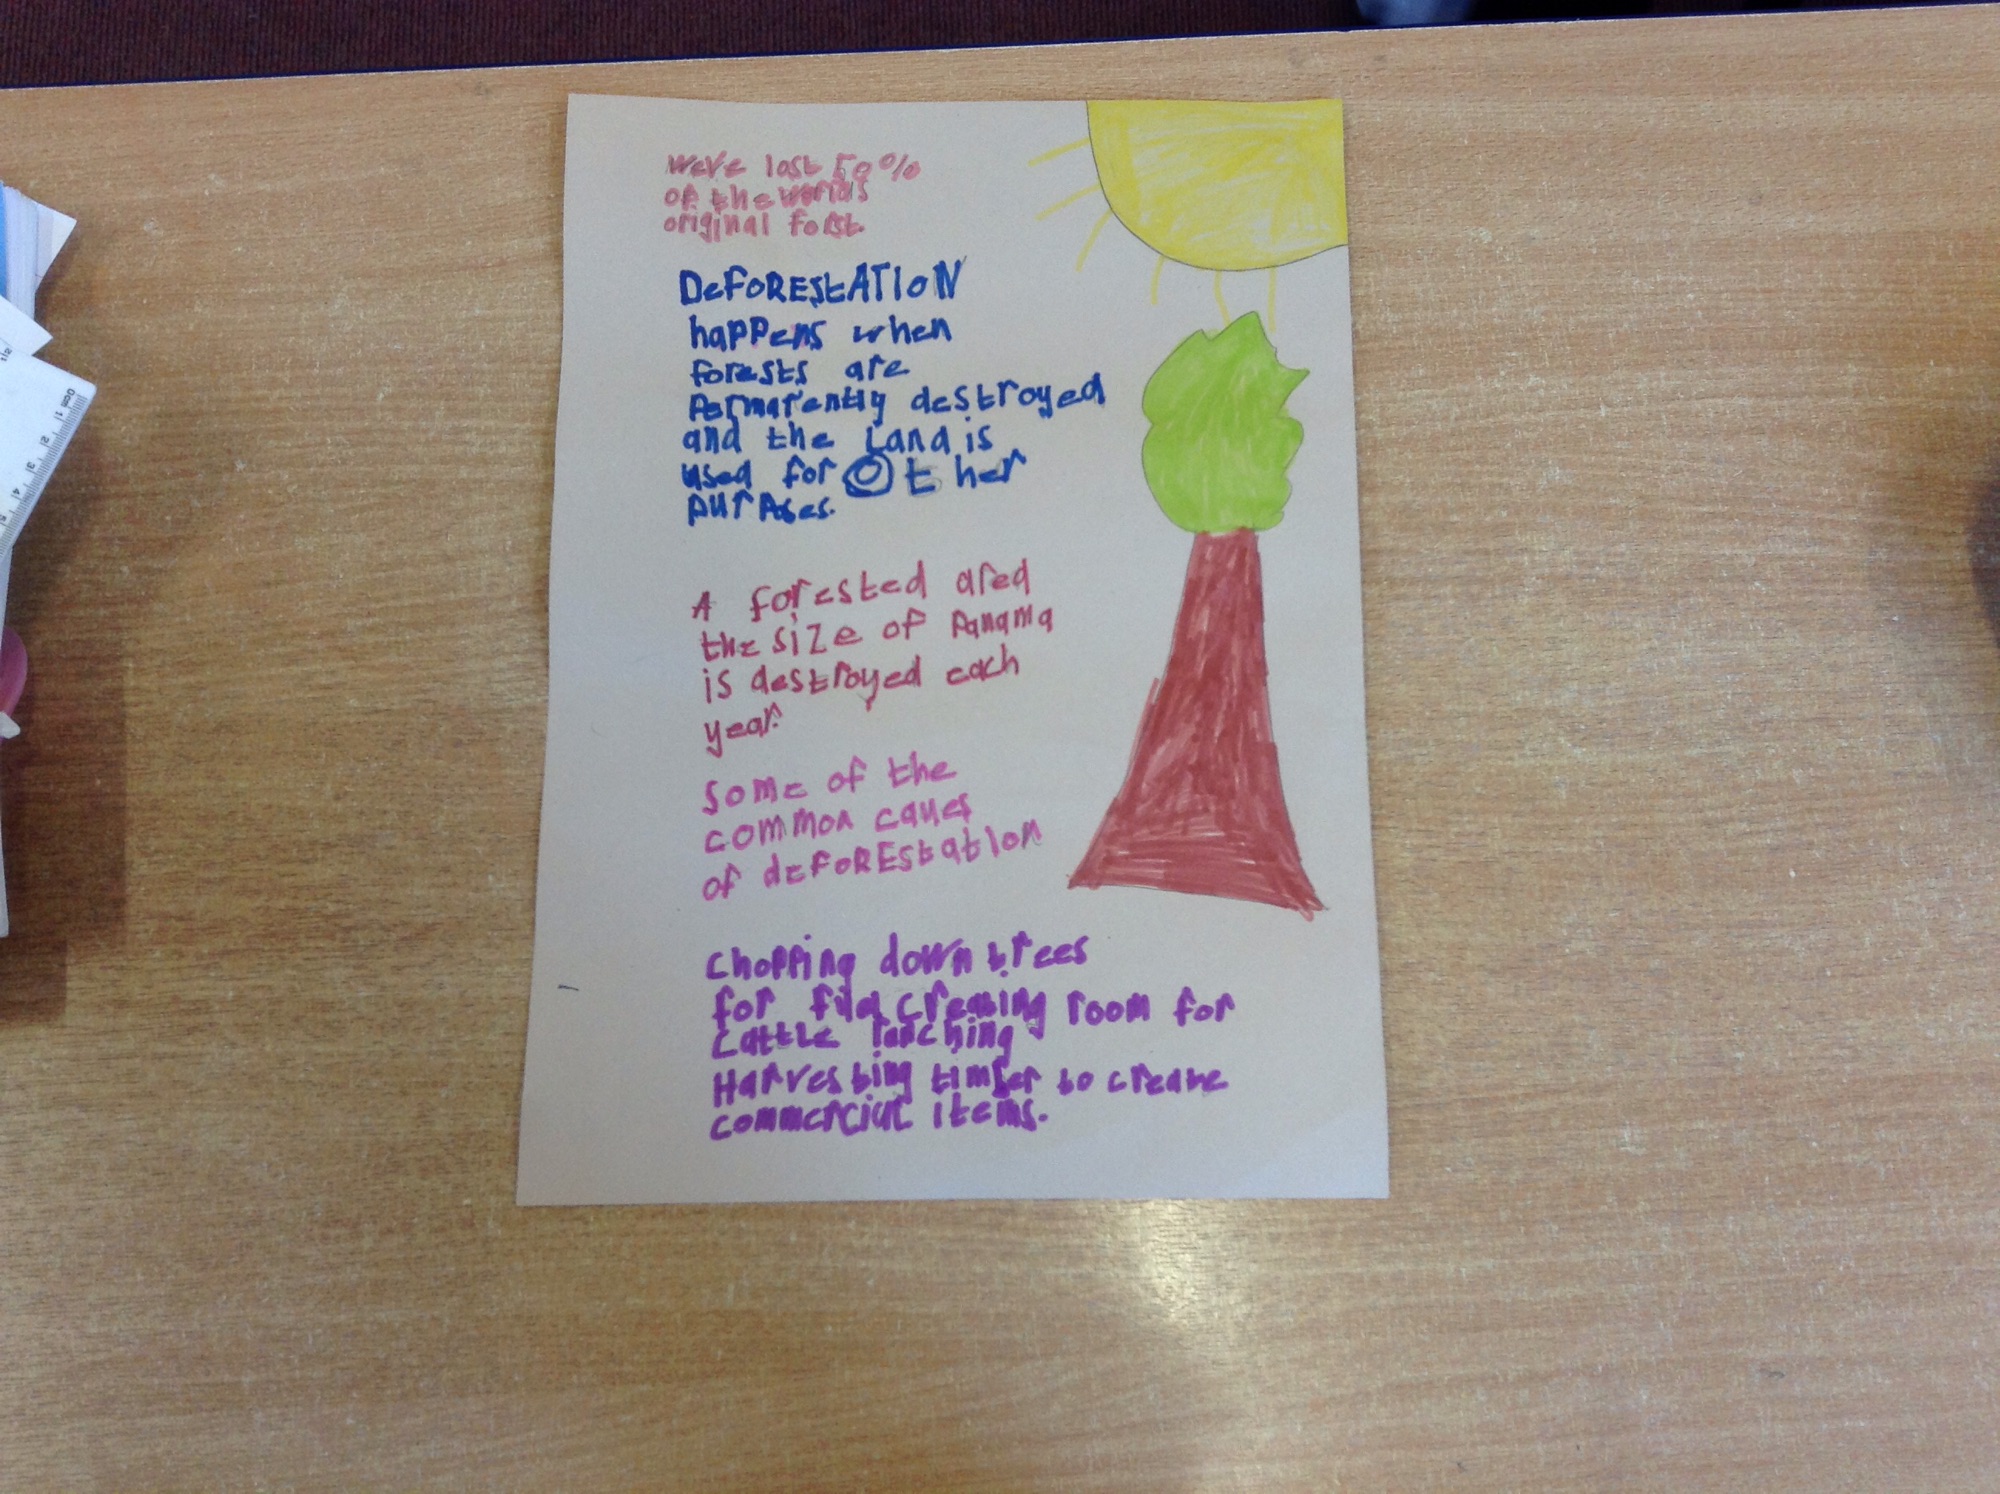 We've lost 50%
of the worlds
original forst.
DeFORESTATION
happens when
forests are
Permarently destroyed
and the Land is
used for Other
purposes.
A forested area
the size of Panama
is destroyed each
year.
Some of the
common caues
of deFOREstation
Chopping down trees
for creating room for
cattle ranching
Harvesting timber to create
commercial items.
0cm 1 2 3 4 5